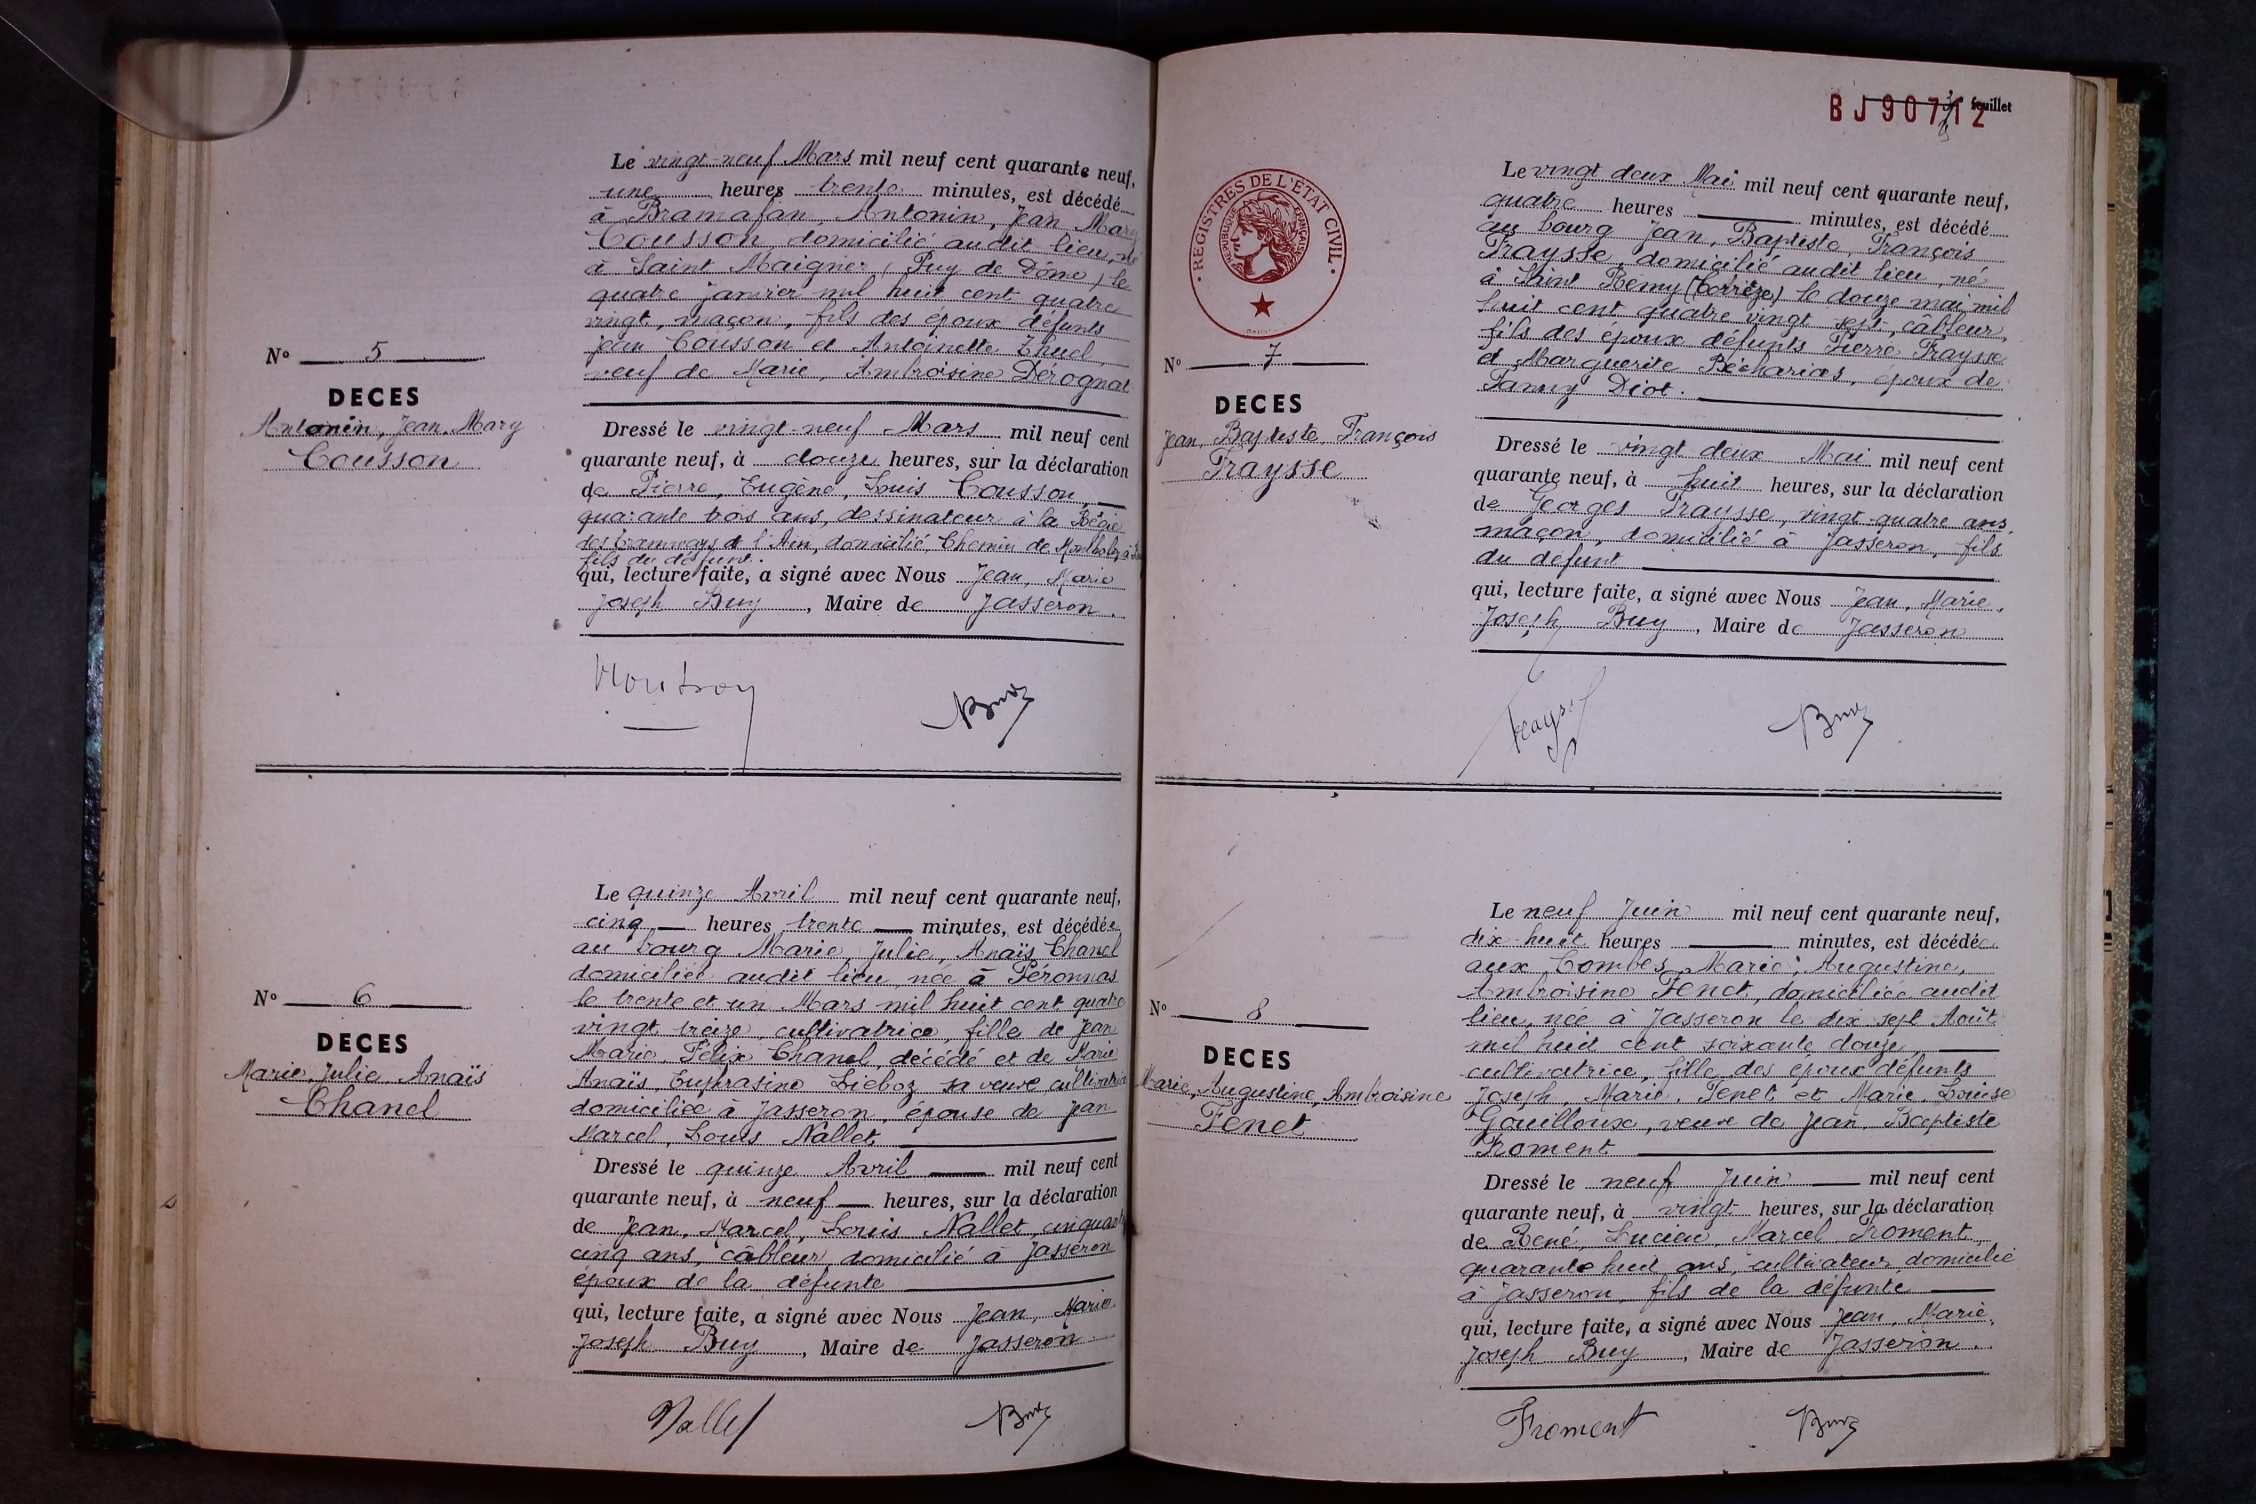 Le vingt-neuf Mars mil neuf cent quarante neuf,
une heures trente minutes, est décédé
à Bramafan, Antonin, Jean Mary
Cousson, domicilié audit lieu, né
à Saint Maigner (Puy de Dôme) le
quatre janvier mil huit cent quatre
vingt, maçon, fils des époux défunts
Jean Cousson et Antoinette
veuf de Marie, Ambroisine Dérognat
N° 5
DECES
Antonin, Jean, Mary
Cousson
Dressé le vingt-neuf Mars mil neuf cent
quarante neuf, à douze heures, sur la déclaration
de Pierre, Eugène, Louis Cousson,
quarante trois ans, dessinateur à la Régie
des tramways de l'Ain, domicilié, Chemin de
fils du défunt.
qui, lecture faite, a signé avec Nous Jean, Marie
Joseph Buy, Maire de Jasseron.
Buy
Le quinze Avril mil neuf cent quarante neuf,
cinq heures trente minutes, est décédée
au bourg Marie, Julie, Anaïs Chanel
domiciliée audit lieu, née à Péronnas
le trente et un Mars mil huit cent quatre
vingt treize, cultivatrice, fille de Jean
Marie, Félix Chanel, décédé et de Marie
Anaïs, Euphrasine Lieboz sa veuve, cultivatrice
domiciliée à Jasseron, épouse de Jean
Marcel, Louis Nallet
N° 6
DECES
Marie, Julie Anaïs
Chanel
Dressé le quinze Avril mil neuf cent
quarante neuf, à neuf heures, sur la déclaration
de Jean, Marcel, Louis Nallet, cinquante
cinq ans, câbleur, domicilié à Jasseron
époux de la défunte
qui, lecture faite, a signé avec Nous Jean, Marie
Joseph Buy, Maire de Jasseron
Nallet Buy
BJ907712 feuillet
REGISTRES DE L'ÉTAT CIVIL
REPUBLIQUE FRANÇAISE
Le vingt deux Mai mil neuf cent quarante neuf,
quatre heures minutes, est décédé
au bourg Jean, Baptiste, François
Fraysse, domicilié audit lieu, né
à Saint Remy (Corrèze) le douze mai mil
huit cent quatre vingt sept, câbleur,
fils des époux défunts Pierre Fraysse
et Marguerite Bécharias, époux de
Fanny Diot.
N° 7
DECES
Jean, Baptiste François
Fraysse
Dressé le vingt deux Mai mil neuf cent
quarante neuf, à huit heures, sur la déclaration
de Georges Fraysse, vingt-quatre ans
maçon, domicilié à Jasseron, fils
du défunt
qui, lecture faite, a signé avec Nous Jean, Marie,
Joseph Buy, Maire de Jasseron
Fraysse Buy
Le neuf Juin mil neuf cent quarante neuf,
dix-huit heures minutes, est décédée
aux Combes Marie, Augustine,
Ambroisine Fenet, domiciliée audit
lieu, née à Jasseron le dix sept Août
mil huit cent soixante douze,
cultivatrice, fille des époux défunts
Joseph, Marie, Fenet et Marie, Louise
Gouilloux, veuve de Jean Baptiste
Froment
N° 8
DECES
Marie, Augustine, Ambroisine
Fenet
Dressé le neuf Juin mil neuf cent
quarante neuf, à vingt heures, sur la déclaration
de René, Lucien, Marcel Froment,
quarante huit ans, cultivateur, domicilié
à Jasseron, fils de la défunte
qui, lecture faite, a signé avec Nous Jean, Marie,
Joseph Buy, Maire de Jasseron.
Froment Buy